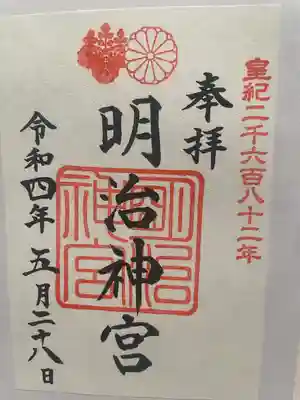 皇紀二千六百八十二年
奉拝
明治神宮
明治神宮
令和四年 五月二十八日